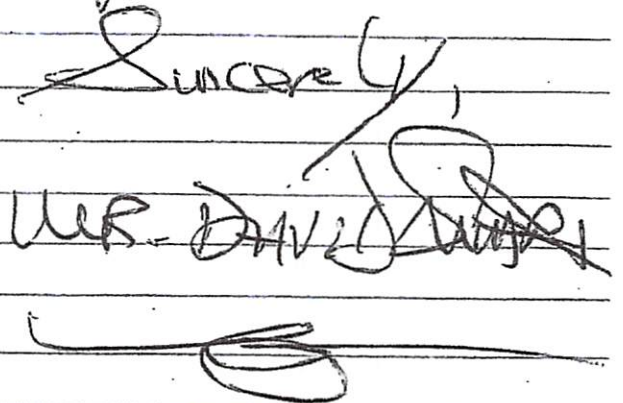 Sincerely,
MR. DAVID